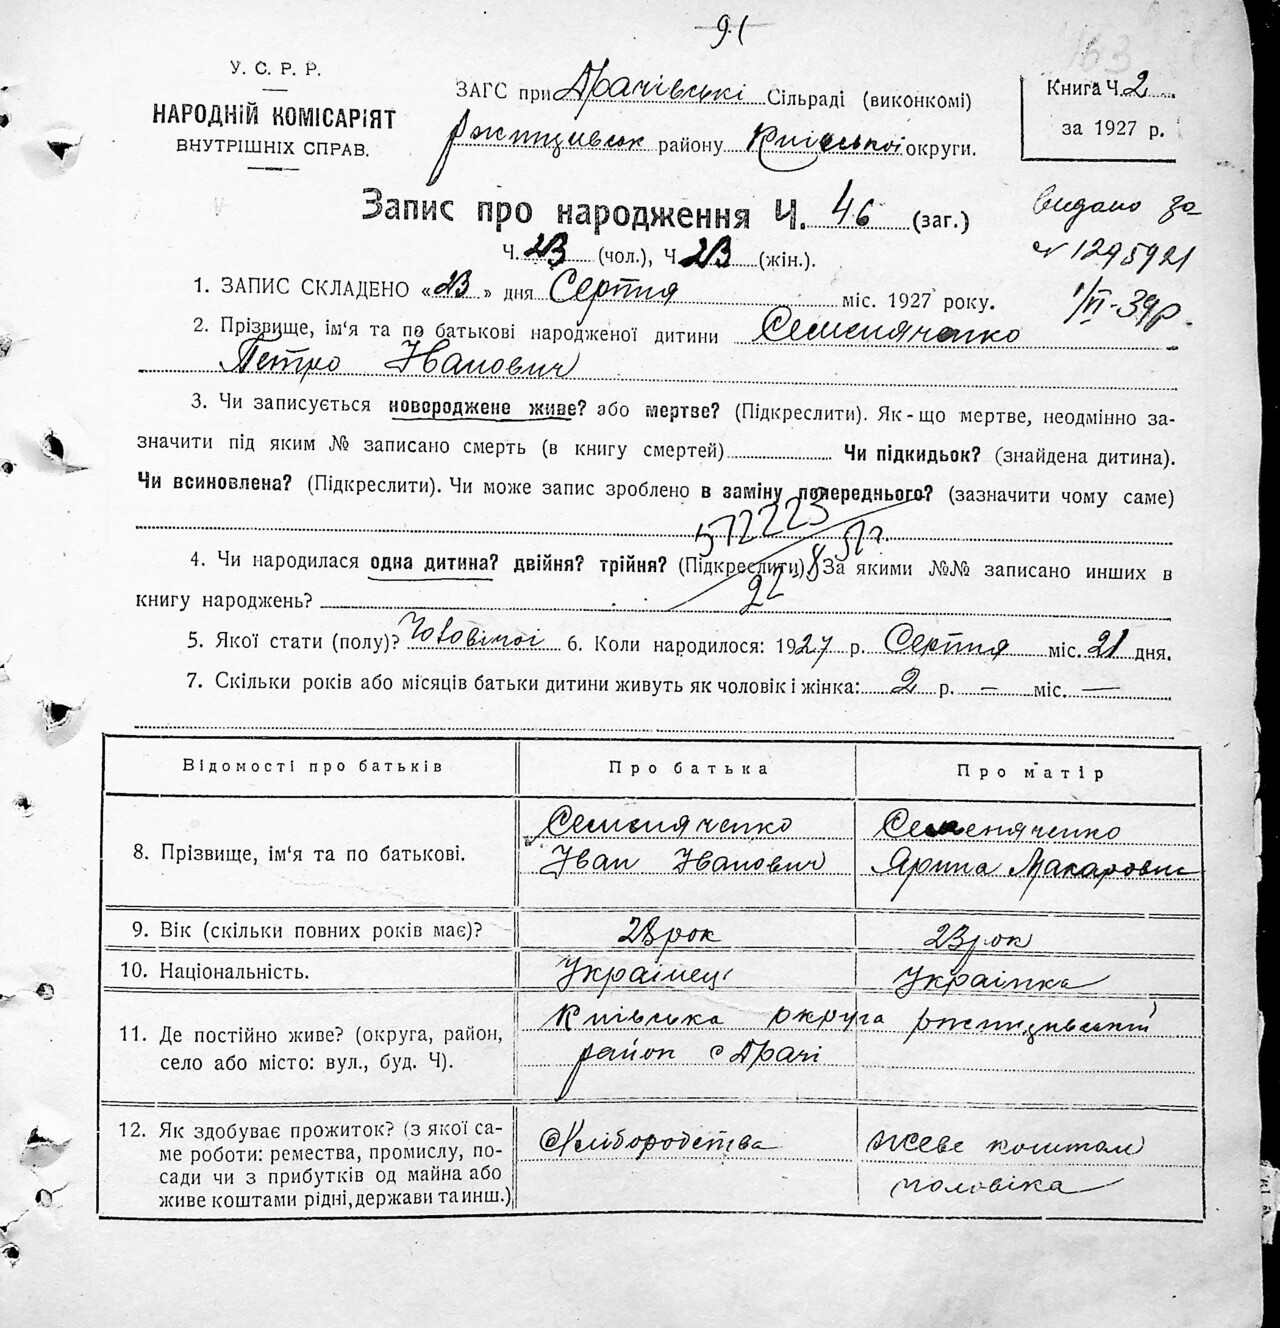 91
163
У. С. Р. Р.
НАРОДНІЙ КОМІСАРІЯТ
ВНУТРІШНІХ СПРАВ.
ЗАГС при Драчівські Сільраді (виконкомі)
ржищивськ району Київської округи.
Книга Ч. 2
за 1927 р.
Запис про народження Ч. 46 (заг.)
Ч. 23 (чол.), Ч. 23 (жін.).
видано за
№ 1295921
1/VI-39р.
1. ЗАПИС СКЛАДЕНО « 23 » дня Серпня міс. 1927 року.
2. Прізвище, ім'я та по батькові народженої дитини Семеняченко
Петро Іванович
3. Чи записується новороджене живе? або мертве? (Підкреслити). Як-що мертве, неодмінно за-
значити під яким № записано смерть (в книгу смертей) Чи підкидьок? (знайдена дитина).
Чи всиновлена? (Підкреслити). Чи може запис зроблено в заміну попереднього? (зазначити чому саме)
572223
22 8 52 г.
4. Чи народилася одна дитина? двійня? трійня? (Підкреслити). За якими №№ записано инших в
книгу народжень?
5. Якої стати (полу)? Чоловічої 6. Коли народилося: 1927 р. Серпня міс. 21 дня.
7. Скільки років або місяців батьки дитини живуть як чоловік і жінка: 2 р. — міс. —
Відомості про батьків Про батька Про матір
8. Прізвище, ім'я та по батькові.
Семеняченко
Іван Іванович
Семеняченко
Ярина Макаровна
9. Вік (скільки повних років має)? 23 рок 23 рок
10. Національність. Українець Українка
11. Де постійно живе? (округа, район,
село або місто: вул., буд. Ч).
Київська округа ржищивський
район с Драчі
12. Як здобуває прожиток? (з якої са-
ме роботи: ремества, промислу, по-
сади чи з прибутків од майна або
живе коштами рідні, держави та инш.)
Хліборобства
живе коштом
чоловіка